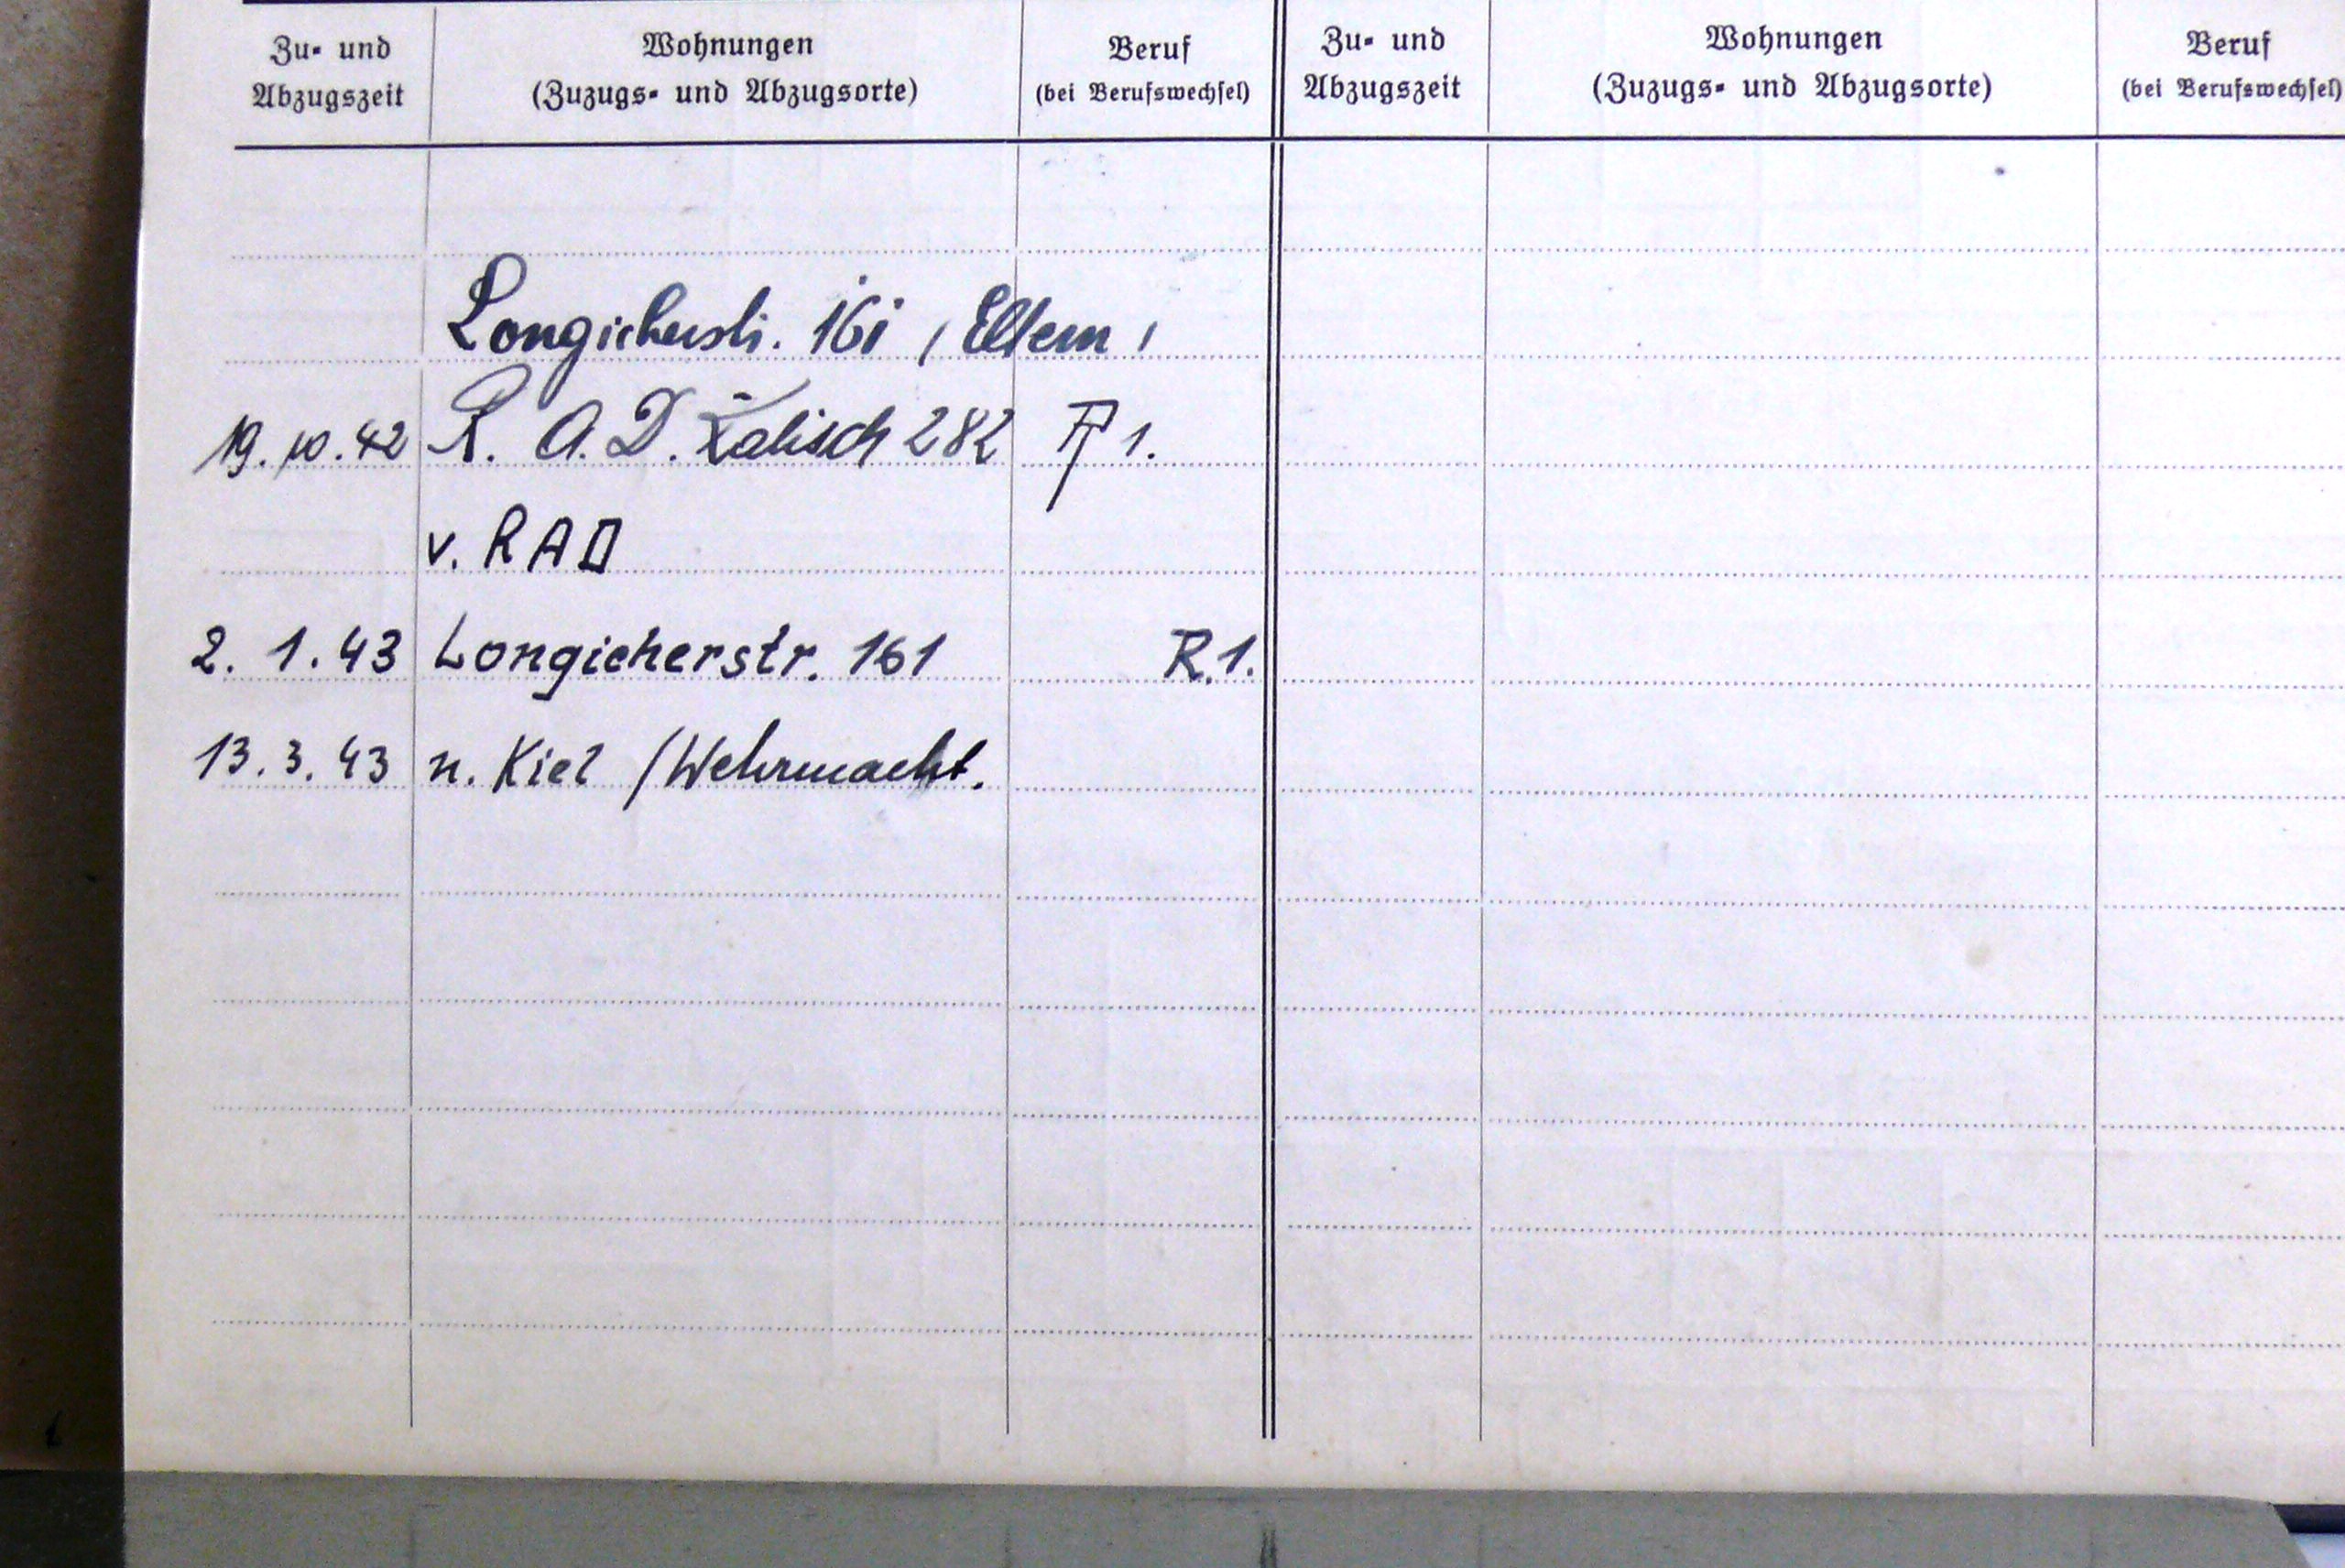 Zu- und Wohnungen Beruf Zu- und Wohnungen Beruf
Abzugszeit (Zuzugs- und Abzugsorte) (bei Berufswechsel) Abzugszeit (Zuzugs- und Abzugsorte) (bei Berufswechsel)
Longicherstr. 161 (Eltern)
19.10.42 R.A.D. Kalisch 282 1.
v. RAD
2.1.43 Longicherstr. 161 R.1.
13.3.43 n. Kiel /Wehrmacht.